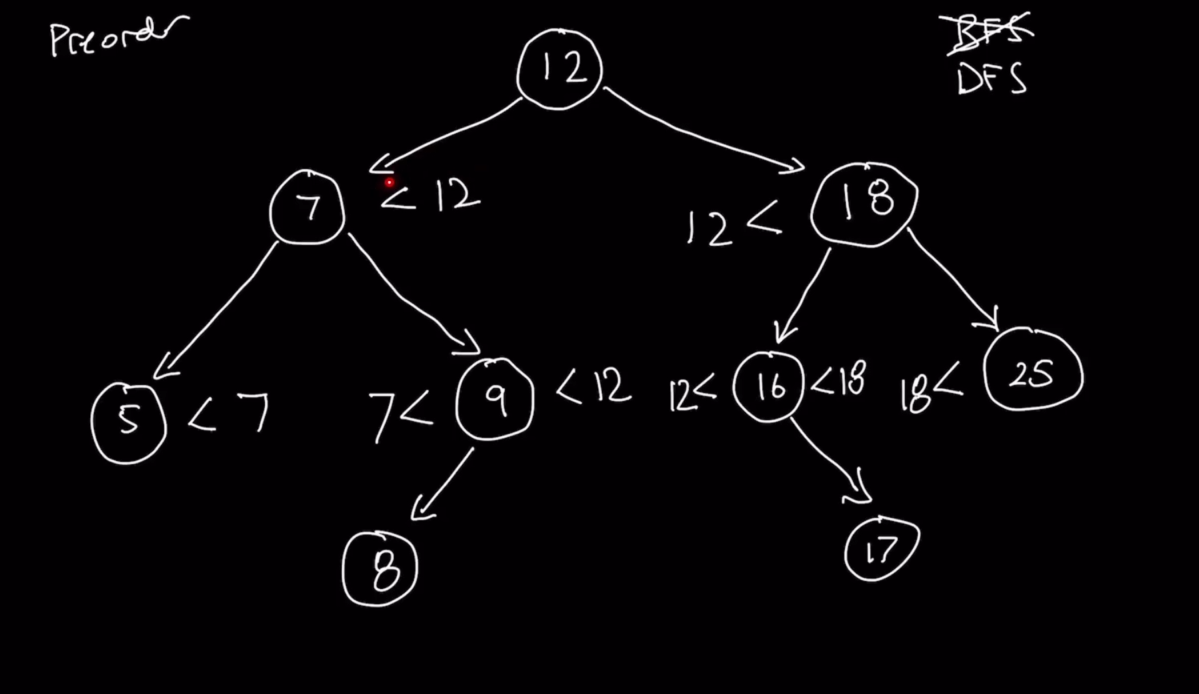 Preorder
BFS
DFS
12
7 < 12
12 < 18
5 < 7
7 < 9 < 12
12 < 16 < 18
18 < 25
8
17